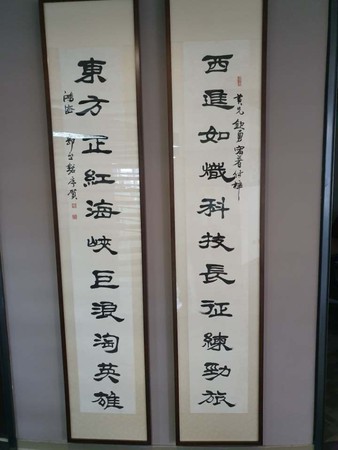 西進如熾科技長征練勁旅
東方正紅海峽巨浪淘英雄